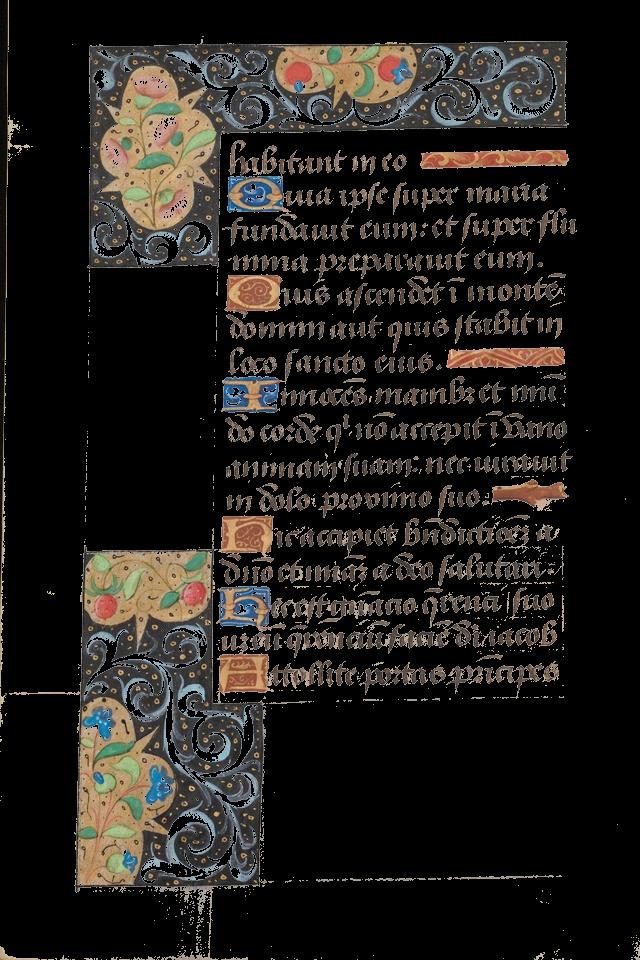 habitant in eo
Quia ipse super maria
fundauit eum: et super flu
mina preparauit eum.
Quis ascendet ī monte
domini aut quis stabit in
loco sancto eius.
Innocēs manibz et mū
do corde qͥ nō accepit ī vano
animam suam: nec iurauit
in dolo proximo suo.
Hic accipiet bn̄dictioēz a
dn̄o et mi͞az a deo salutari.
Hec est gn̄acio q̄renciū
uziū faciē di iacob
Attollite portas prīncipes